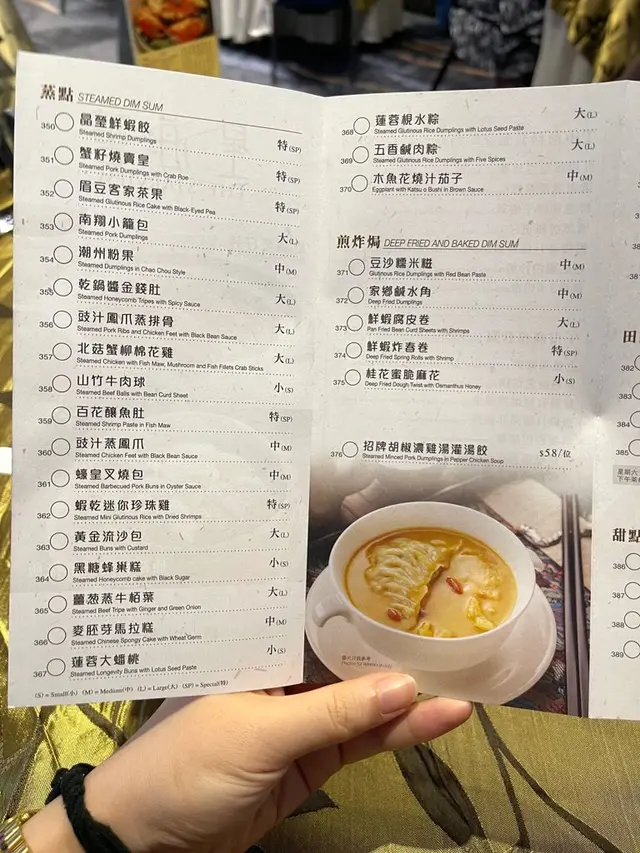 蒸點 STEAMED DIM SUM
350 晶瑩鮮蝦餃 特(SP)
Steamed Shrimp Dumplings
351 蟹籽燒賣皇 特(SP)
Steamed Pork Dumplings with Crab Roe
352 眉豆客家茶果 特(SP)
Steamed Glutinous Rice Cake with Black-Eyed Pea
353 南翔小籠包 大(L)
Steamed Pork Dumplings
354 潮州粉果 中(M)
Steamed Dumplings in Chao Chou Style
355 乾鍋醬金錢肚 大(L)
Steamed Honeycomb Tripes with Spicy Sauce
356 豉汁鳳爪蒸排骨 大(L)
Steamed Pork Ribs and Chicken Feet with Black Bean Sauce
357 北菇蟹柳棉花雞 大(L)
Steamed Chicken with Fish Maw, Mushroom and Fish Fillets Crab Sticks
358 山竹牛肉球 小(S)
Steamed Beef Balls with Bean Curd Sheet
359 百花釀魚肚 特(SP)
Steamed Shrimp Paste in Fish Maw
360 豉汁蒸鳳爪 中(M)
Steamed Chicken Feet with Black Bean Sauce
361 蠔皇叉燒包 中(M)
Steamed Barbecued Pork Buns in Oyster Sauce
362 蝦乾迷你珍珠雞 特(SP)
Steamed Mini Glutinous Rice with Dried Shrimps
363 黃金流沙包 大(L)
Steamed Buns with Custard
364 黑糖蜂巢糕 小(S)
Steamed Honeycomb cake with Black Sugar
365 薑葱蒸牛栢葉 大(L)
Steamed Beef Tripe with Ginger and Green Onion
366 麥胚芽馬拉糕 中(M)
Steamed Chinese Spongy Cake with Wheat Germ
367 蓮蓉大蟠桃 小(S)
Steamed Longevity Buns with Lotus Seed Paste
(S) = Small(小) (M) = Medium(中) (L) = Large(大) (SP) = Special(特)
368 蓮蓉梘水粽 大(L)
Steamed Glutinous Rice Dumplings with Lotus Seed Paste
369 五香鹹肉粽 大(L)
Steamed Glutinous Rice Dumplings with Five Spices
370 木魚花燒汁茄子 中(M)
Eggplant with Katsu o Bushi in Brown Sauce
煎炸焗 DEEP FRIED AND BAKED DIM SUM
371 豆沙糯米糍 中(M)
Glutinous Rice Dumplings with Red Bean Paste
372 家鄉鹹水角 中(M)
Deep Fried Dumplings
373 鮮蝦腐皮卷 大(L)
Pan Fried Bean Curd Sheets with Shrimps
374 鮮蝦炸春卷 特(SP)
Deep Fried Spring Rolls with Shrimp
375 桂花蜜脆麻花 小(S)
Deep Fried Dough Twist with Osmanthus Honey
376 招牌胡椒濃雞湯灌湯餃 $58/位
Steamed Minced Pork Dumplings in Pepper Chicken Soup
圖片只供參考
田
382
383
384
385
星期六
下午茶
甜點
386
387
388
389